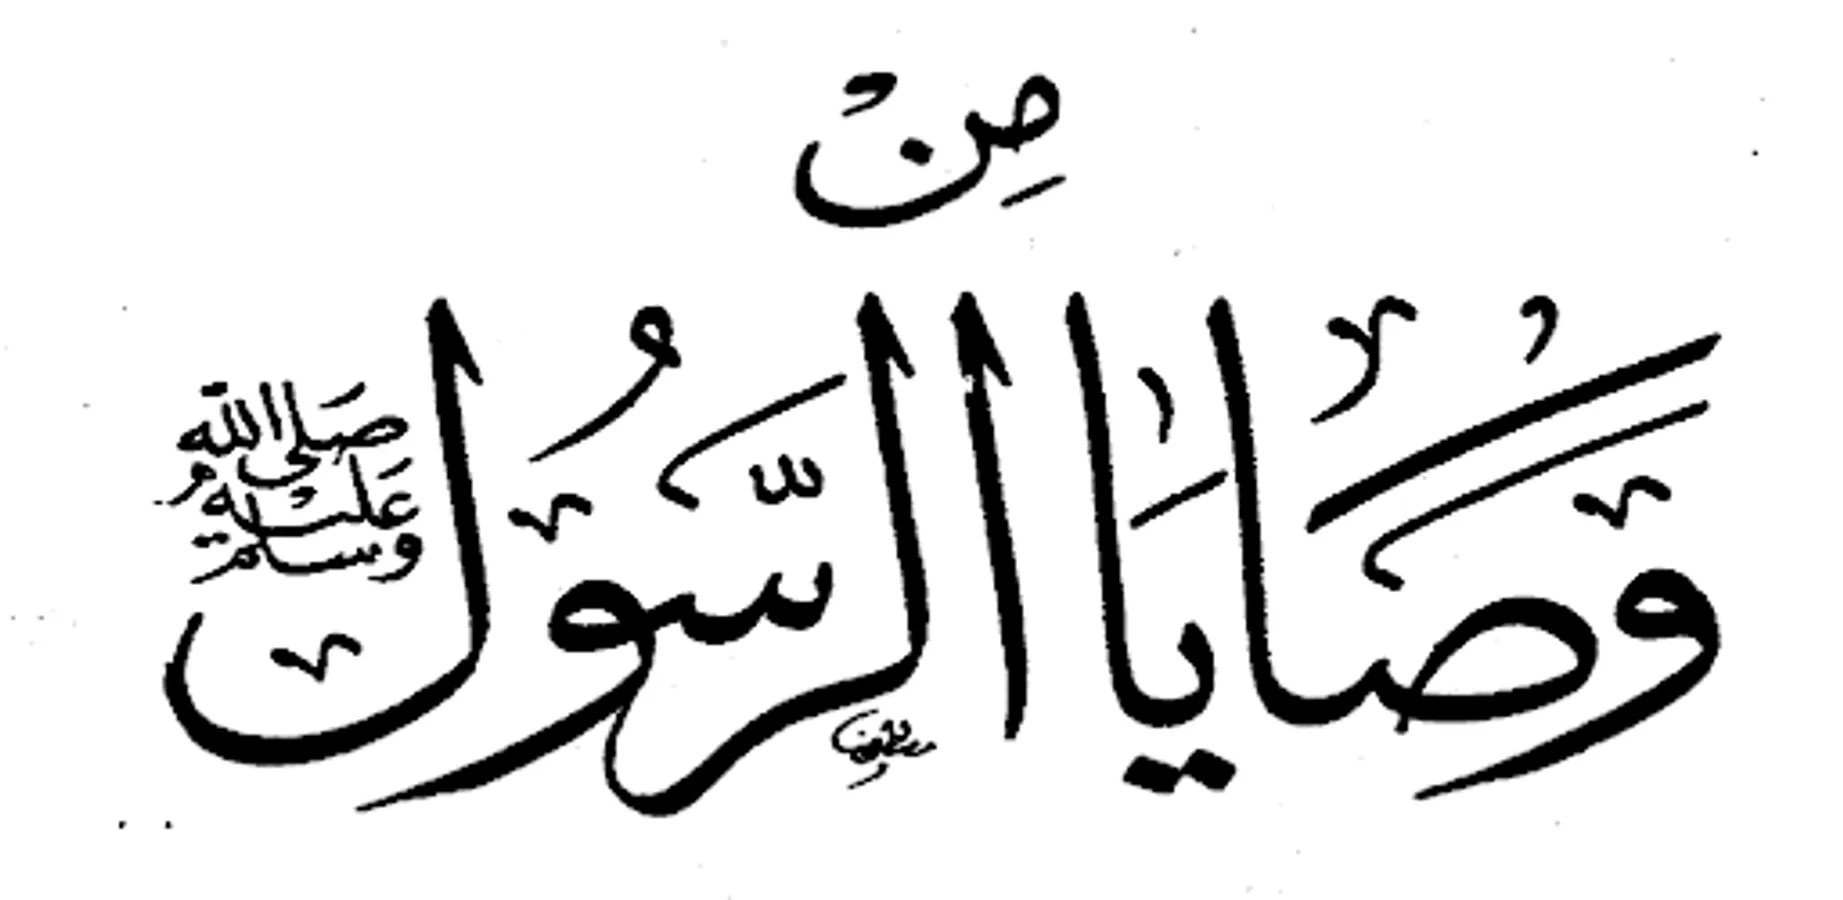 مِنْ
وَصَايَا الرَّسُول
صَلى الله
عَليْه
وسلم